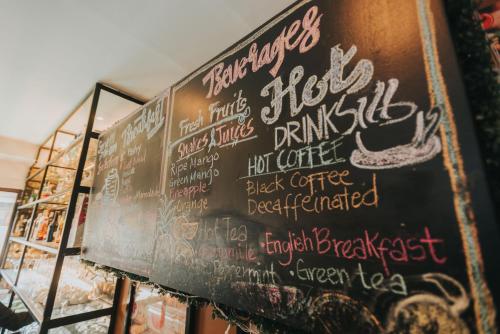 Breakfast
Beverages
Fresh Fruits
Shakes & Juices
Ripe Mango
Green Mango
Pineapple
Orange
Hots
DRINKS
HOT COFFEE
Black Coffee
Decaffeinated
Hot Tea
Chamomile • English Breakfast
Peppermint • Green tea